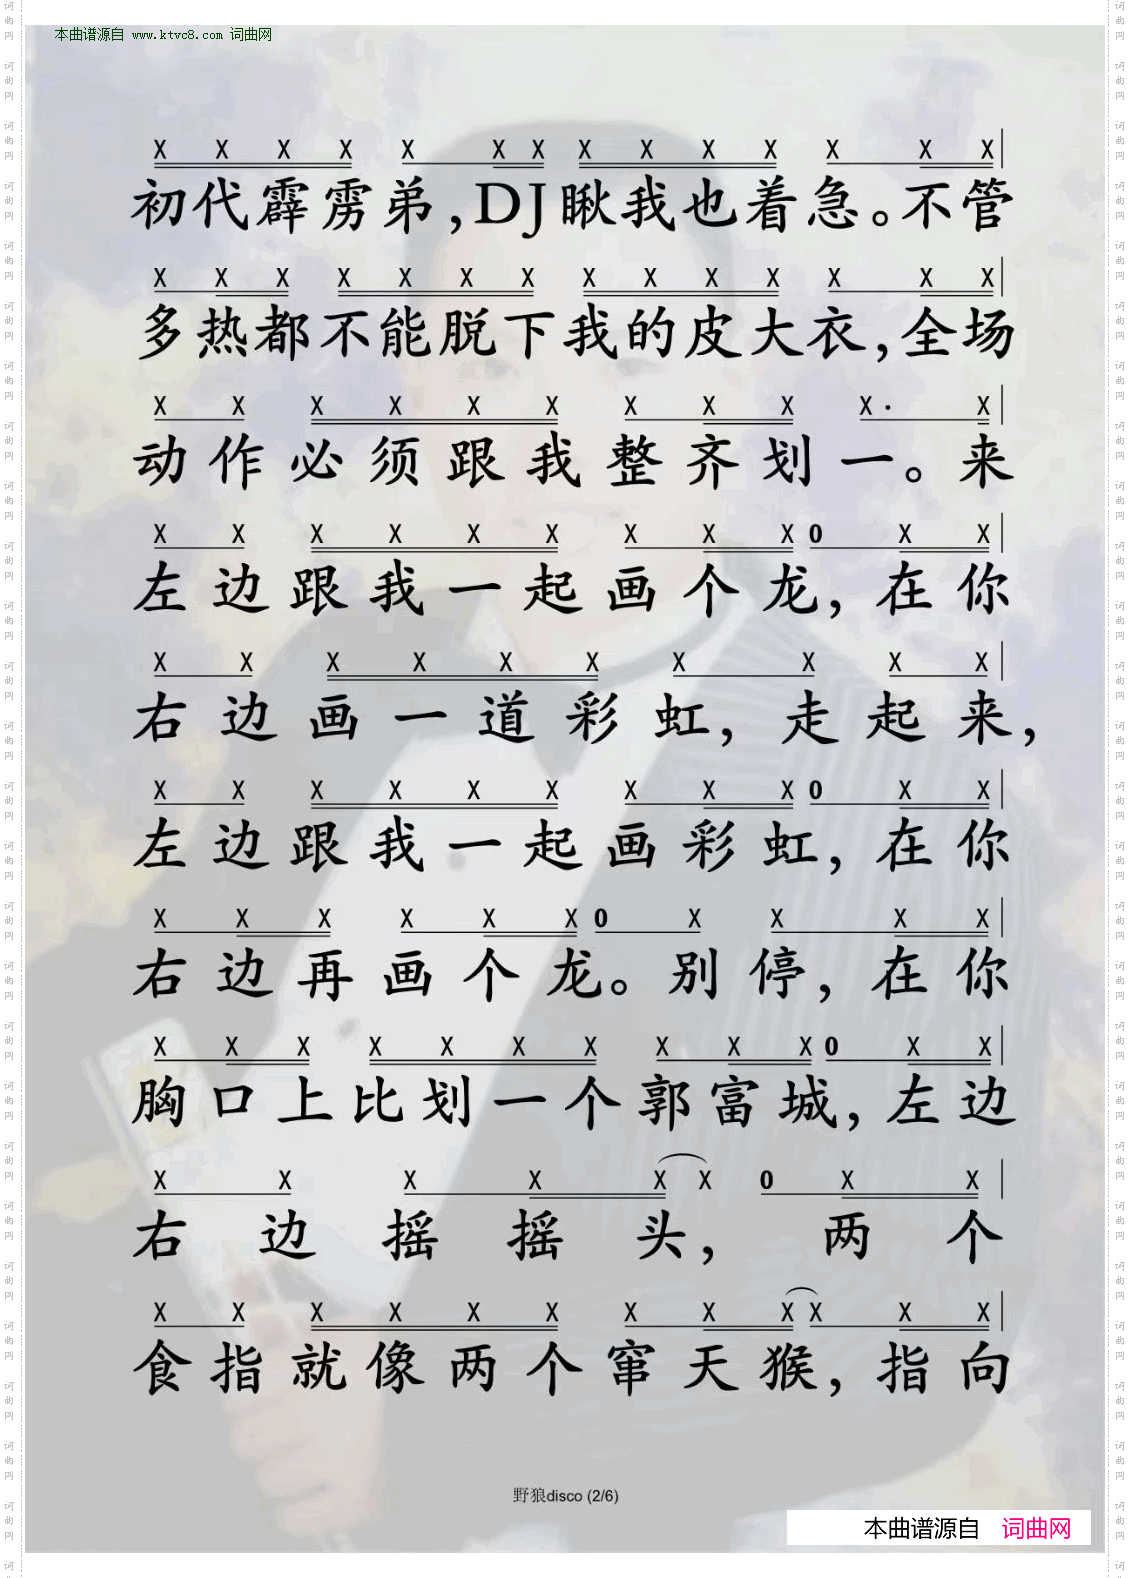 本曲谱源自 www.ktvc8.com 词曲网
X X X X X X X X X X X X X X
初代霹雳弟,DJ瞅我也着急。不管
X X X X X X X X X X X X X X
多热都不能脱下我的皮大衣,全场
X X X X X X X X X X· X
动作必须跟我整齐划一。来
X X X X X X X X X 0 X X
左边跟我一起画个龙,在你
X X X X X X X X X X
右边画一道彩虹,走起来,
X X X X X X X X X 0 X X
左边跟我一起画彩虹,在你
X X X X X X 0 X X X X
右边再画个龙。别停,在你
X X X X X X X X X X 0 X X
胸口上比划一个郭富城,左边
X X X X X X 0 X X
右边摇摇头,两个
X X X X X X X X X X X X
食指就像两个窜天猴,指向
野狼disco (2/6)
本曲谱源自 词曲网